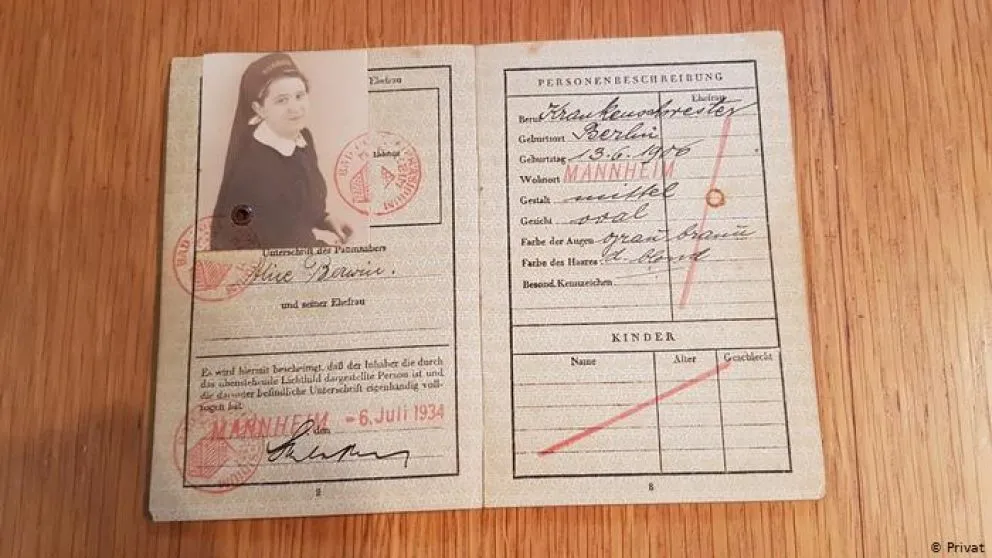 Ehefrau
Unterschrift des Paßinhabers
Alice Berwin.
und seiner Ehefrau
Es wird hiermit bescheinigt, daß der Inhaber die durch
das obenstehende Lichtbild dargestellte Person ist und
die darunter befindliche Unterschrift eigenhändig voll-
zogen hat.
MANNHEIM den - 6. Juli 1934
PERSONENBESCHREIBUNG
Ehefrau
Beruf Krankenschwester
Geburtsort Berlin
Geburtstag 13.6.1906
Wohnort MANNHEIM
Gestalt mittel
Gesicht oval
Farbe der Augen grau braun
Farbe des Haares d. blond
Besond. Kennzeichen
KINDER
Name Alter Geschlecht
© Privat